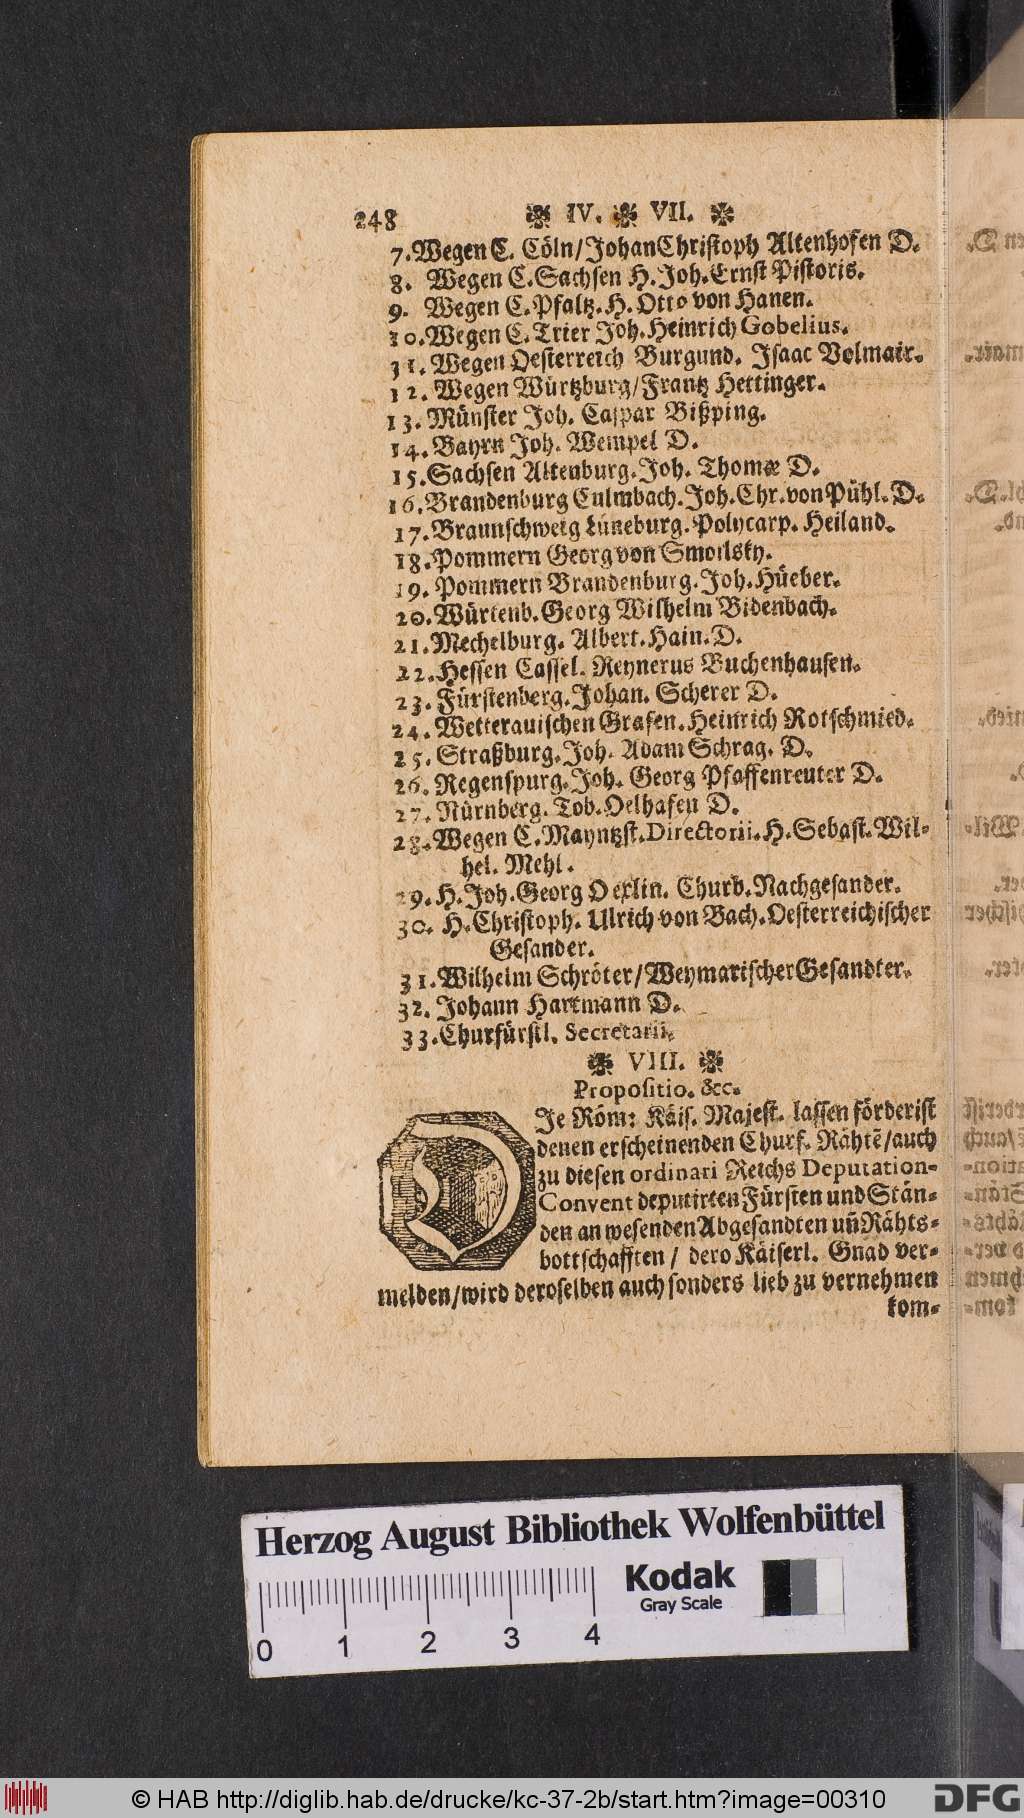 248 IV. VII.
7. Wegen C. Cöln/Johan Christoph Altenhofen D.
8. Wegen C. Sachsen H. Joh. Ernst Pistoris.
9. Wegen C. Pfaltz. H. Otto von Hanen.
10. Wegen C. Trier Joh. Heinrich Gobelius.
11. Wegen Oesterreich Burgund. Isaac Volmair.
12. Wegen Würtzburg/Frantz Hettinger.
13. Münster Joh. Caspar Bißping.
14. Bayrn Joh. Wempel D.
15. Sachsen Altenburg. Joh. Thomæ D.
16. Brandenburg Culmbach. Joh. Chr. von Pühl. D.
17. Braunschweig Lüneburg. Polycarp. Heiland.
18. Pommern Georg von Smoilsky.
19. Pommern Brandenburg. Joh. Hüeber.
20. Würtenb. Georg Wilhelm Bidenbach.
21. Mechelburg. Albert. Hain. D.
22. Hessen Cassel. Reynerus Buchenhausen.
23. Fürstenberg. Johan. Scherer D.
24. Wetterauischen Grafen. Heinrich Rotschmied.
25. Straßburg. Joh. Adam Schrag. D.
26. Regenspurg. Joh. Georg Pfaffenreuter D.
27. Nürnberg. Tob. Oelhafen D.
28. Wegen C. Mayntzst. Directorii. H. Sebast. Wil-
hel. Mehl.
29. H. Joh. Georg Oexlin. Churb. Nachgesander.
30. H. Christoph. Ulrich von Bach. Oesterreichischer
Gesander.
31. Wilhelm Schröter/Weymarischer Gesandter.
32. Johann Hartmann D.
33. Churfürstl. Secretarii.
VIII.
Propositio. &c.
DIe Röm: Käis. Majest. lassen förderist
denen erscheinenden Churf. Rähtẽ/auch
zu diesen ordinari Reichs Deputation-
Convent deputirten Fürsten und Stän-
den anwesenden Abgesandten uñ Rähts-
bottschafften / dero Käiserl. Gnad ver-
melden/wird deroselben auch sonders lieb zu vernehmen
kom-
Herzog August Bibliothek Wolfenbüttel
Kodak
Gray Scale
0 1 2 3 4
© HAB http://diglib.hab.de/drucke/kc-37-2b/start.htm?image=00310
DFG